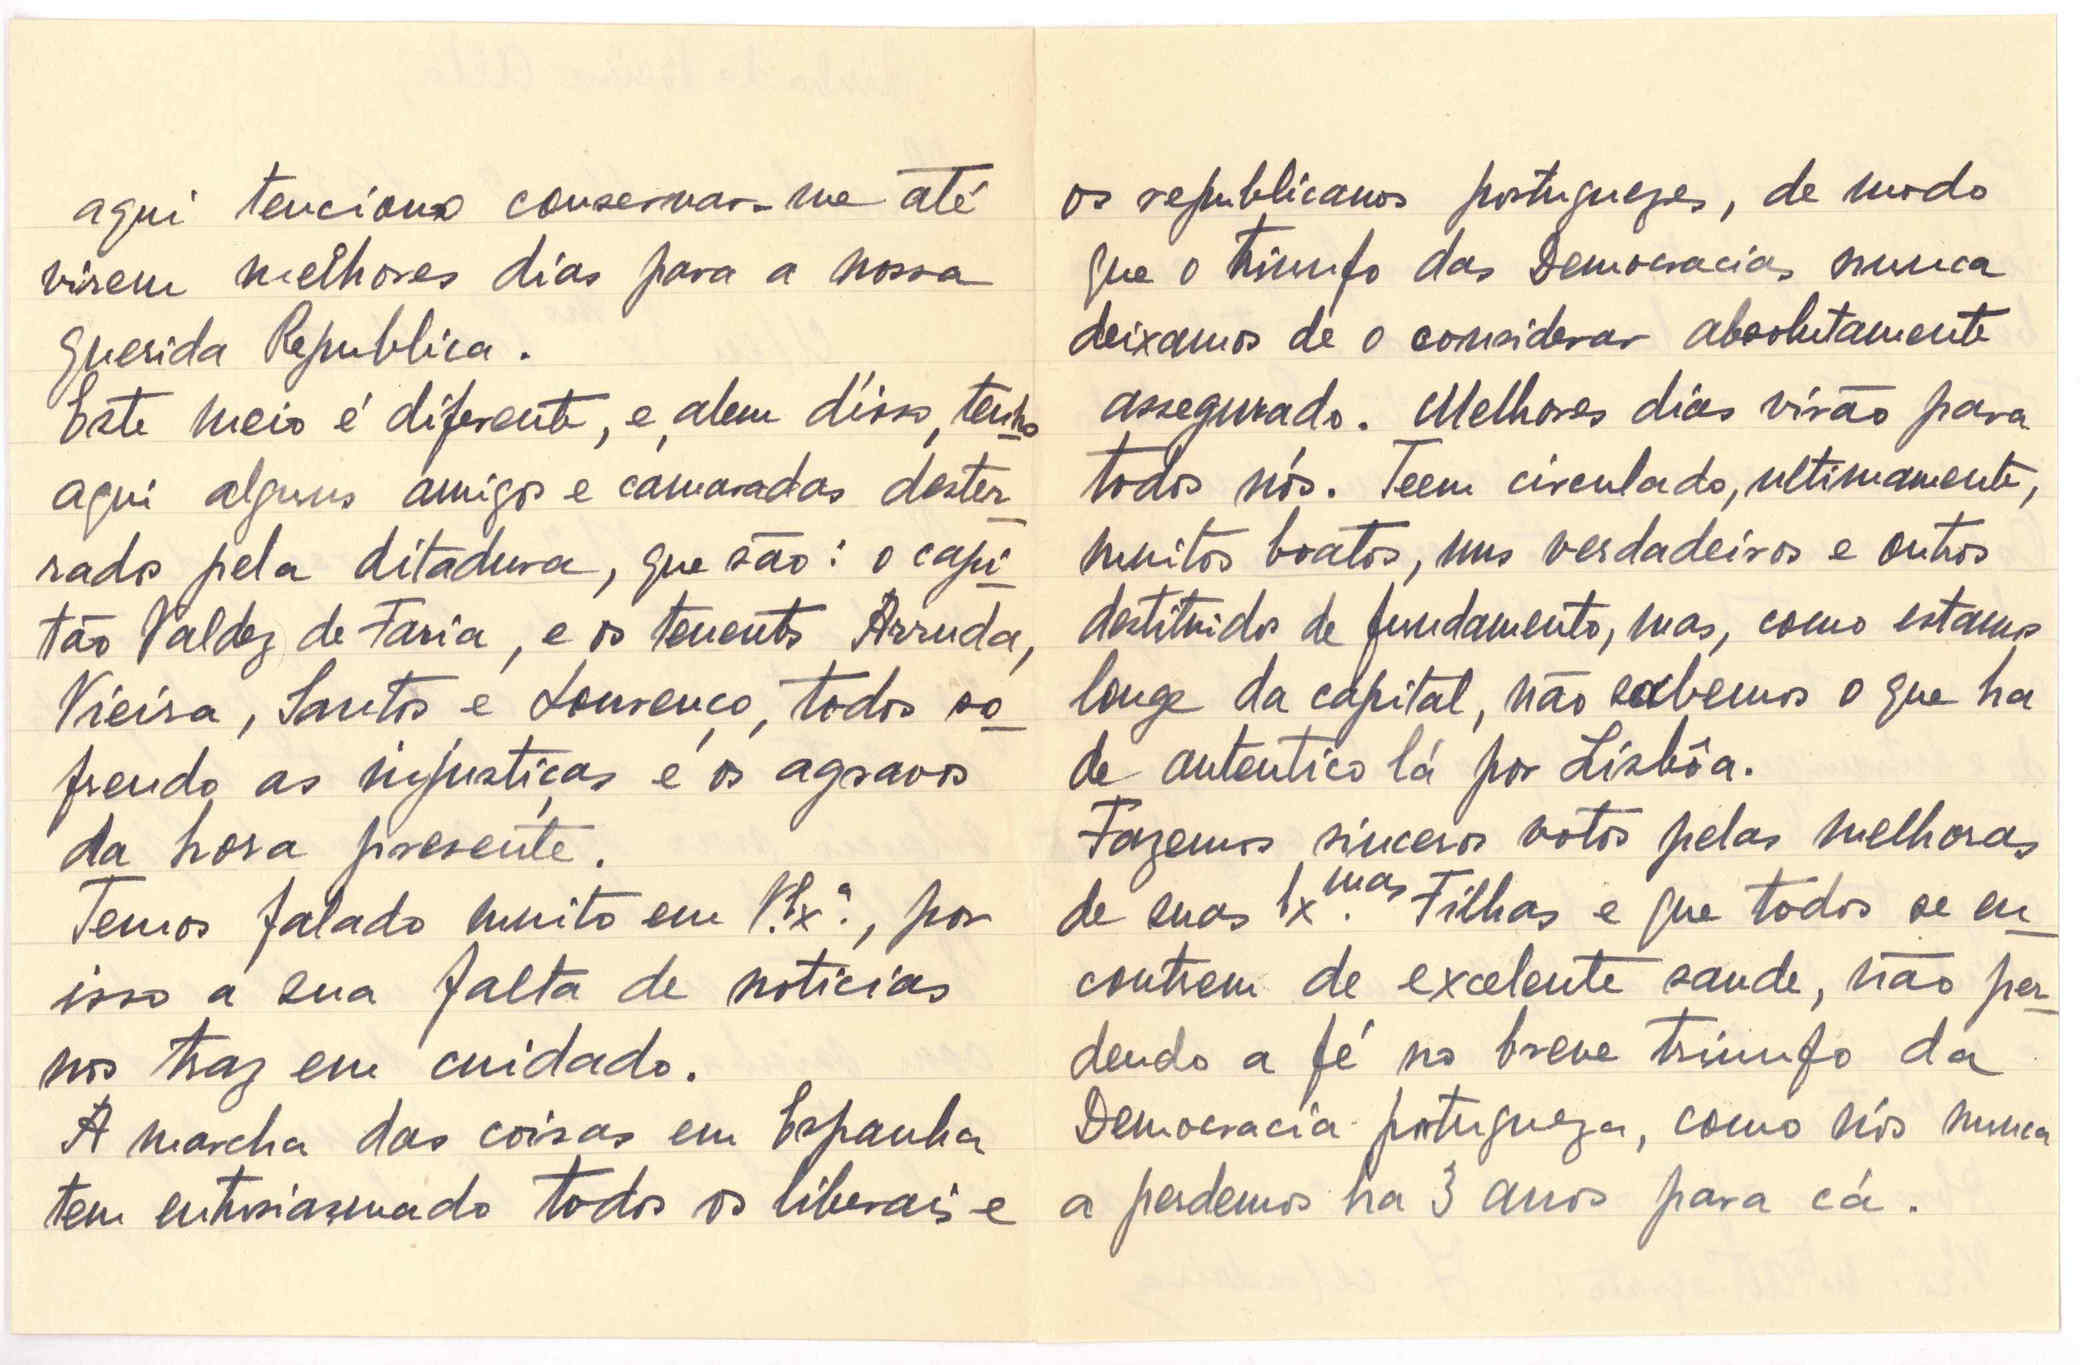 aqui tenciono conservar-me até
virem melhores dias para a nossa
querida Republica.
Este meio é diferente, e, alem disso, tenho
aqui alguns amigos e camaradas dester-
rados pela ditadura, que são: o capi-
tão Valdez de Faria, e os tenentes Arruda,
Vieira, Santos e Lourenço, todos so-
frendo as injustiças e os agravos
da hora presente.
Temos falado muito em V. Ex.ª, por
isso a sua falta de noticias
nos traz em cuidado.
A marcha das coisas em Espanha
tem entusiasmado todos os liberais e
os republicanos portuguezes, de modo
que o triunfo das Democracias nunca
deixamos de o considerar absolutamente
assegurado. Melhores dias virão para
todos nós. Teem circulado, ultimamente,
muitos boatos, uns verdadeiros e outros
destituidos de fundamento, mas, como estamos
longe da capital, não sabemos o que ha
de autentico lá por Lisbôa.
Fazemos sinceros votos pelas melhoras
de suas Ex.mas Filhas e que todos se en-
contrem de excelente saude, não per-
dendo a fé no breve triunfo da
Democracia portugueza, como nós nunca
a perdemos ha 3 anos para cá.